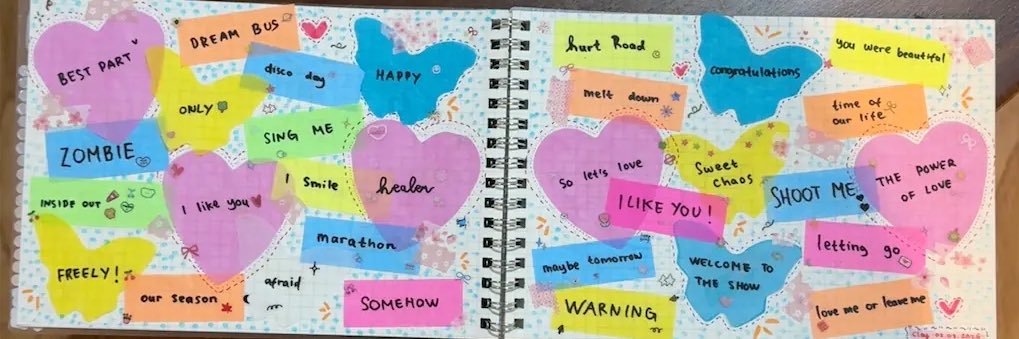 BEST PART
DREAM BUS
disco day
HAPPY
ONLY
SING ME
ZOMBIE
I Smile
healer
INSIDE OUT
I like you
marathon
FREELY!
our season
afraid
SOMEHOW
hurt Road
congratulations
you were beautiful
melt down
time of
our life
so let's love
Sweet
chaos
SHOOT ME
THE POWER
OF LOVE
I LIKE YOU!
letting go
maybe tomorrow
WELCOME TO
THE SHOW
WARNING
love me or leave me